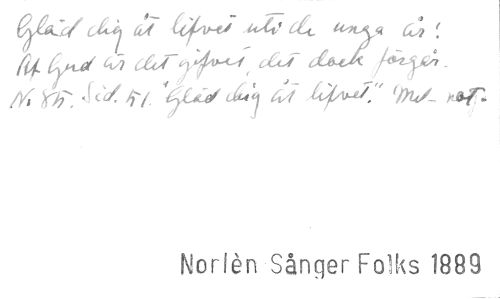 Gläd dig åt lifvet uti de unga år!
Af Gud är det gifvet, det dock förgår.
N. 85. Sid. 51. "Gläd dig åt lifvet." Mel. not.
Norlèn Sånger Folks 1889